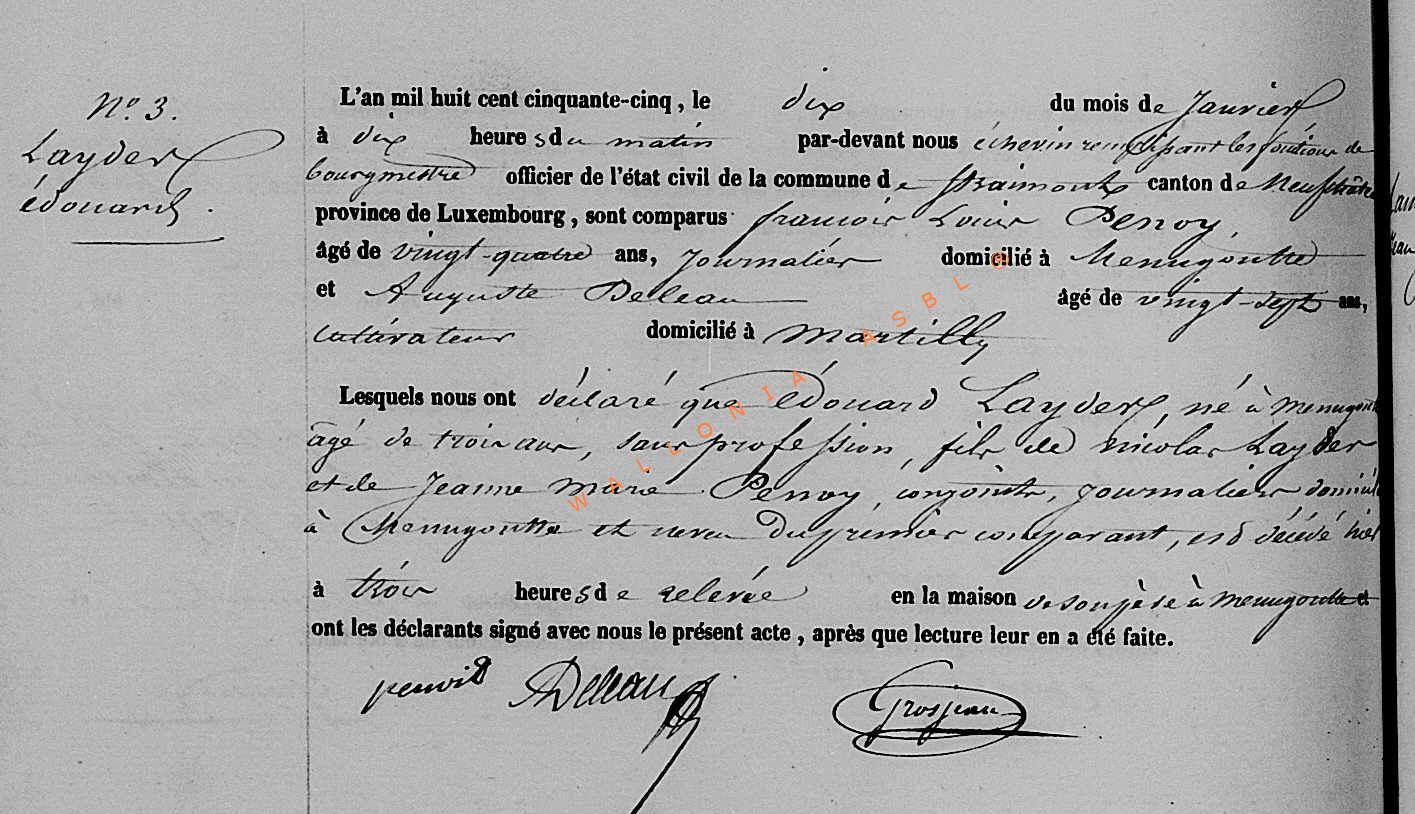 N° 3.
Layder
édouard.
L'an mil huit cent cinquante-cinq, le dix du mois de Janvier
à dix heures du matin par-devant nous échevin remplissant les fonctions de
bourgmestre officier de l'état civil de la commune de Straimont canton de Neufchâteau
province de Luxembourg, sont comparus francois Louis Penoy,
âgé de vingt-quatre ans, Journalier domicilié à Menugoutte
et Auguste Deleau âgé de vingt-sept ans,
cultivateur domicilié à Martilly
Lesquels nous ont déclaré que édouard Layder, né à menugoutte
âgé de trois ans, sans profession, fils de nicolas Layder
et de Jeanne marie Penoy, conjoints, journaliers domiciliés
à Menugoutte et neveu du premier comparant, est décédé hier
à trois heures de relevée en la maison de son père à menugoutte et
ont les déclarants signé avec nous le présent acte, après que lecture leur en a été faite.
penoit ADeleau Grosjean
WALLONIA ASBL ©